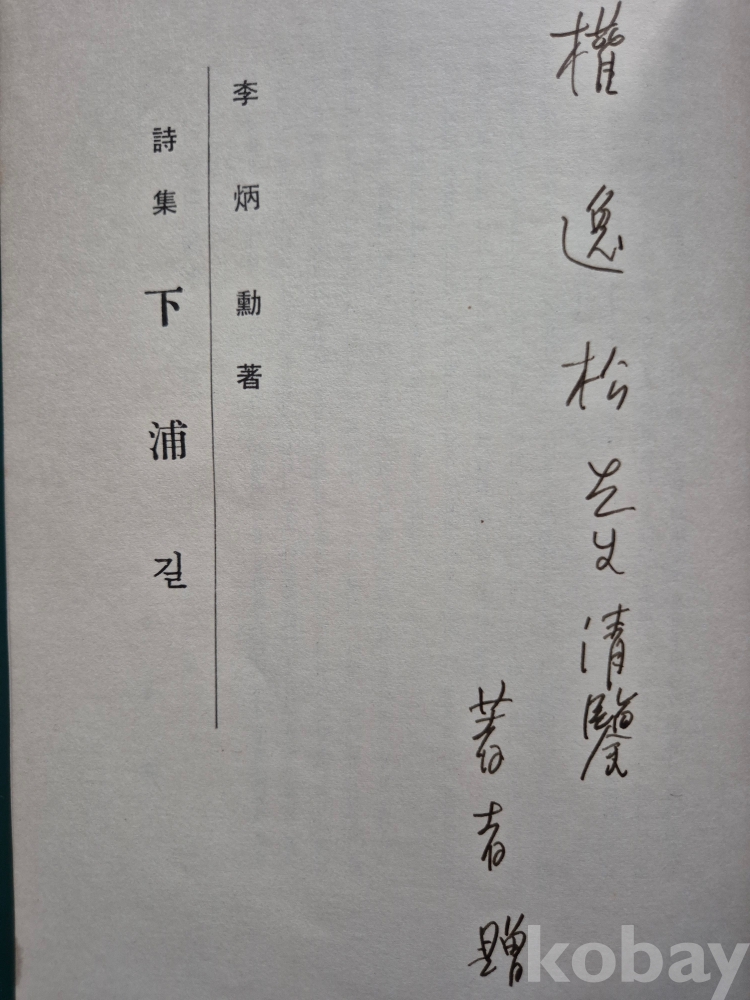 權逸松先生清鑒
著者 贈
李炳勳著
詩集 下浦길
kobay